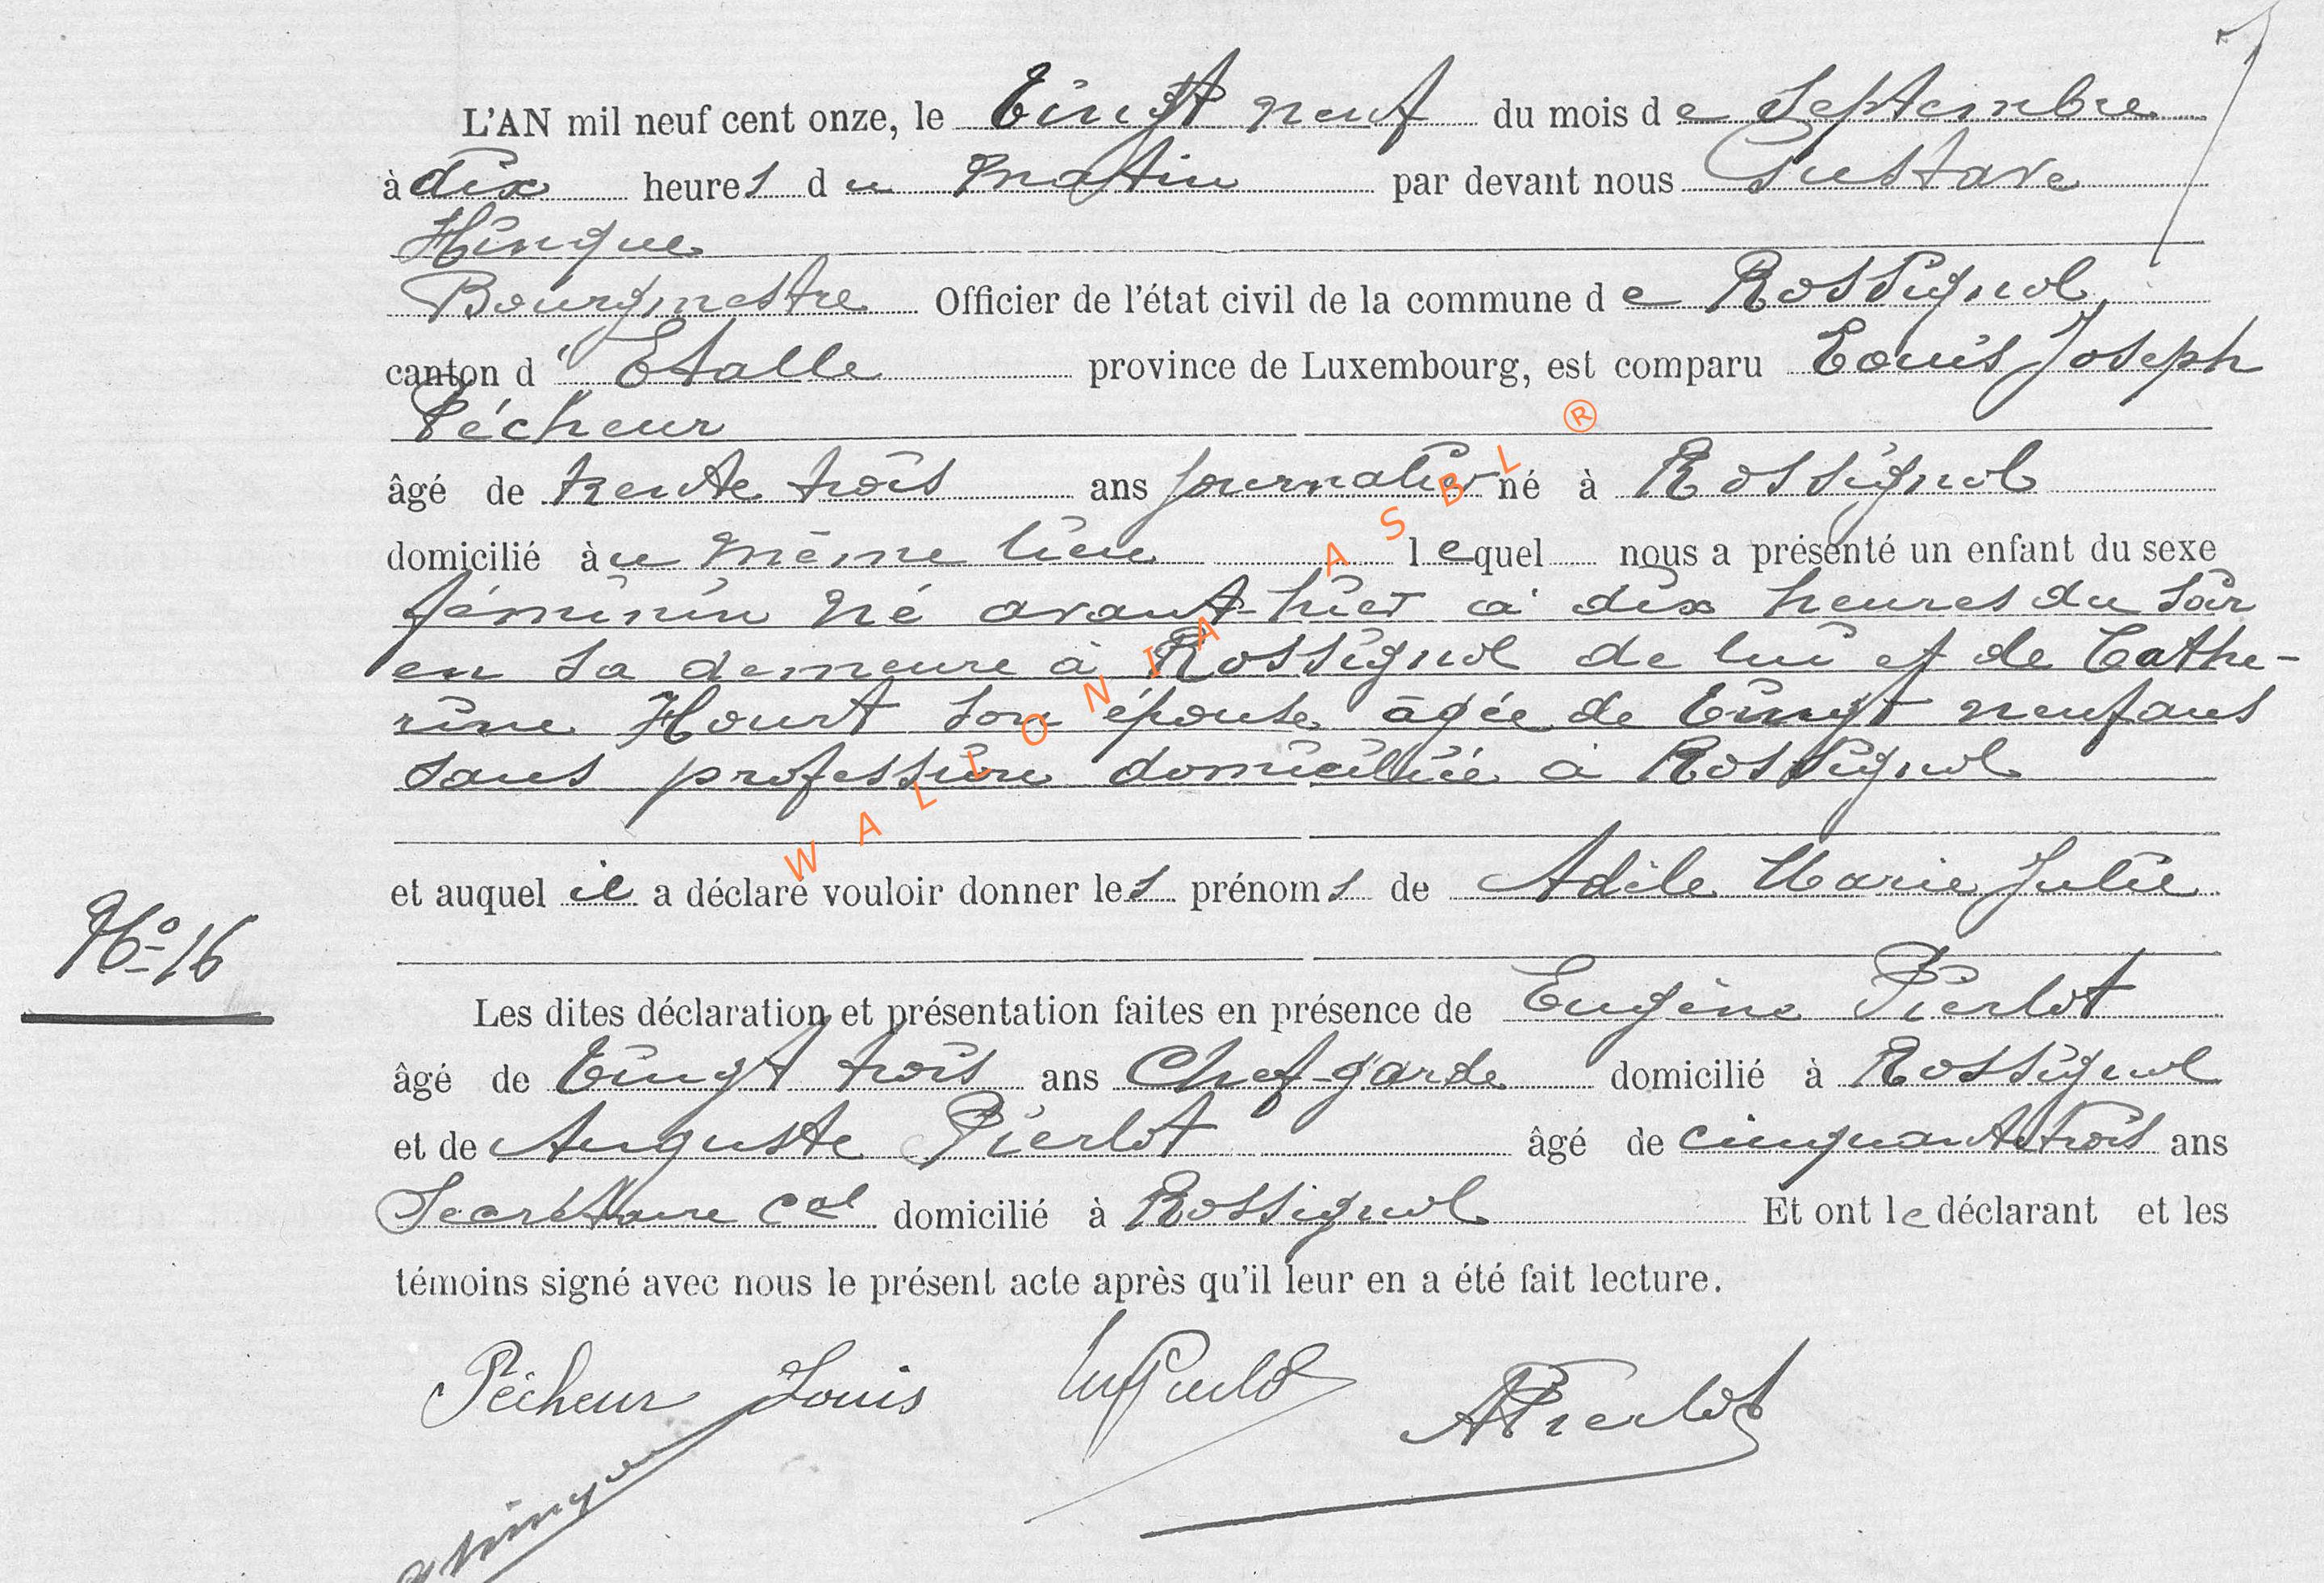 L'AN mil neuf cent onze, le Vingt neuf du mois de Septembre
à dix heures du matin par devant nous Gustave
Hinque
Bourgmestre Officier de l'état civil de la commune de Rossignol,
canton d'Etalle province de Luxembourg, est comparu Louis Joseph
Pécheur
âgé de trente trois ans journalier né à Rossignol
domicilié au même lieu lequel nous a présenté un enfant du sexe
féminin né avant-hier à dix heures du soir
en sa demeure à Rossignol de lui et de Cathe-
rine Hourt son épouse âgée de Vingt neuf ans
sans profession domiciliée à Rossignol
et auquel il a déclaré vouloir donner les prénoms de Adèle Marie Julie
No 16
Les dites déclaration et présentation faites en présence de Eugène Pierlot
âgé de Vingt trois ans Chef-garde domicilié à Rossignol
et de Auguste Pierlot âgé de cinquante trois ans
Secrétaire cal domicilié à Rossignol Et ont le déclarant et les
témoins signé avec nous le présent acte après qu'il leur en a été fait lecture.
Pécheur Louis APierlot
GHinque
WALLONIA ASBL ®